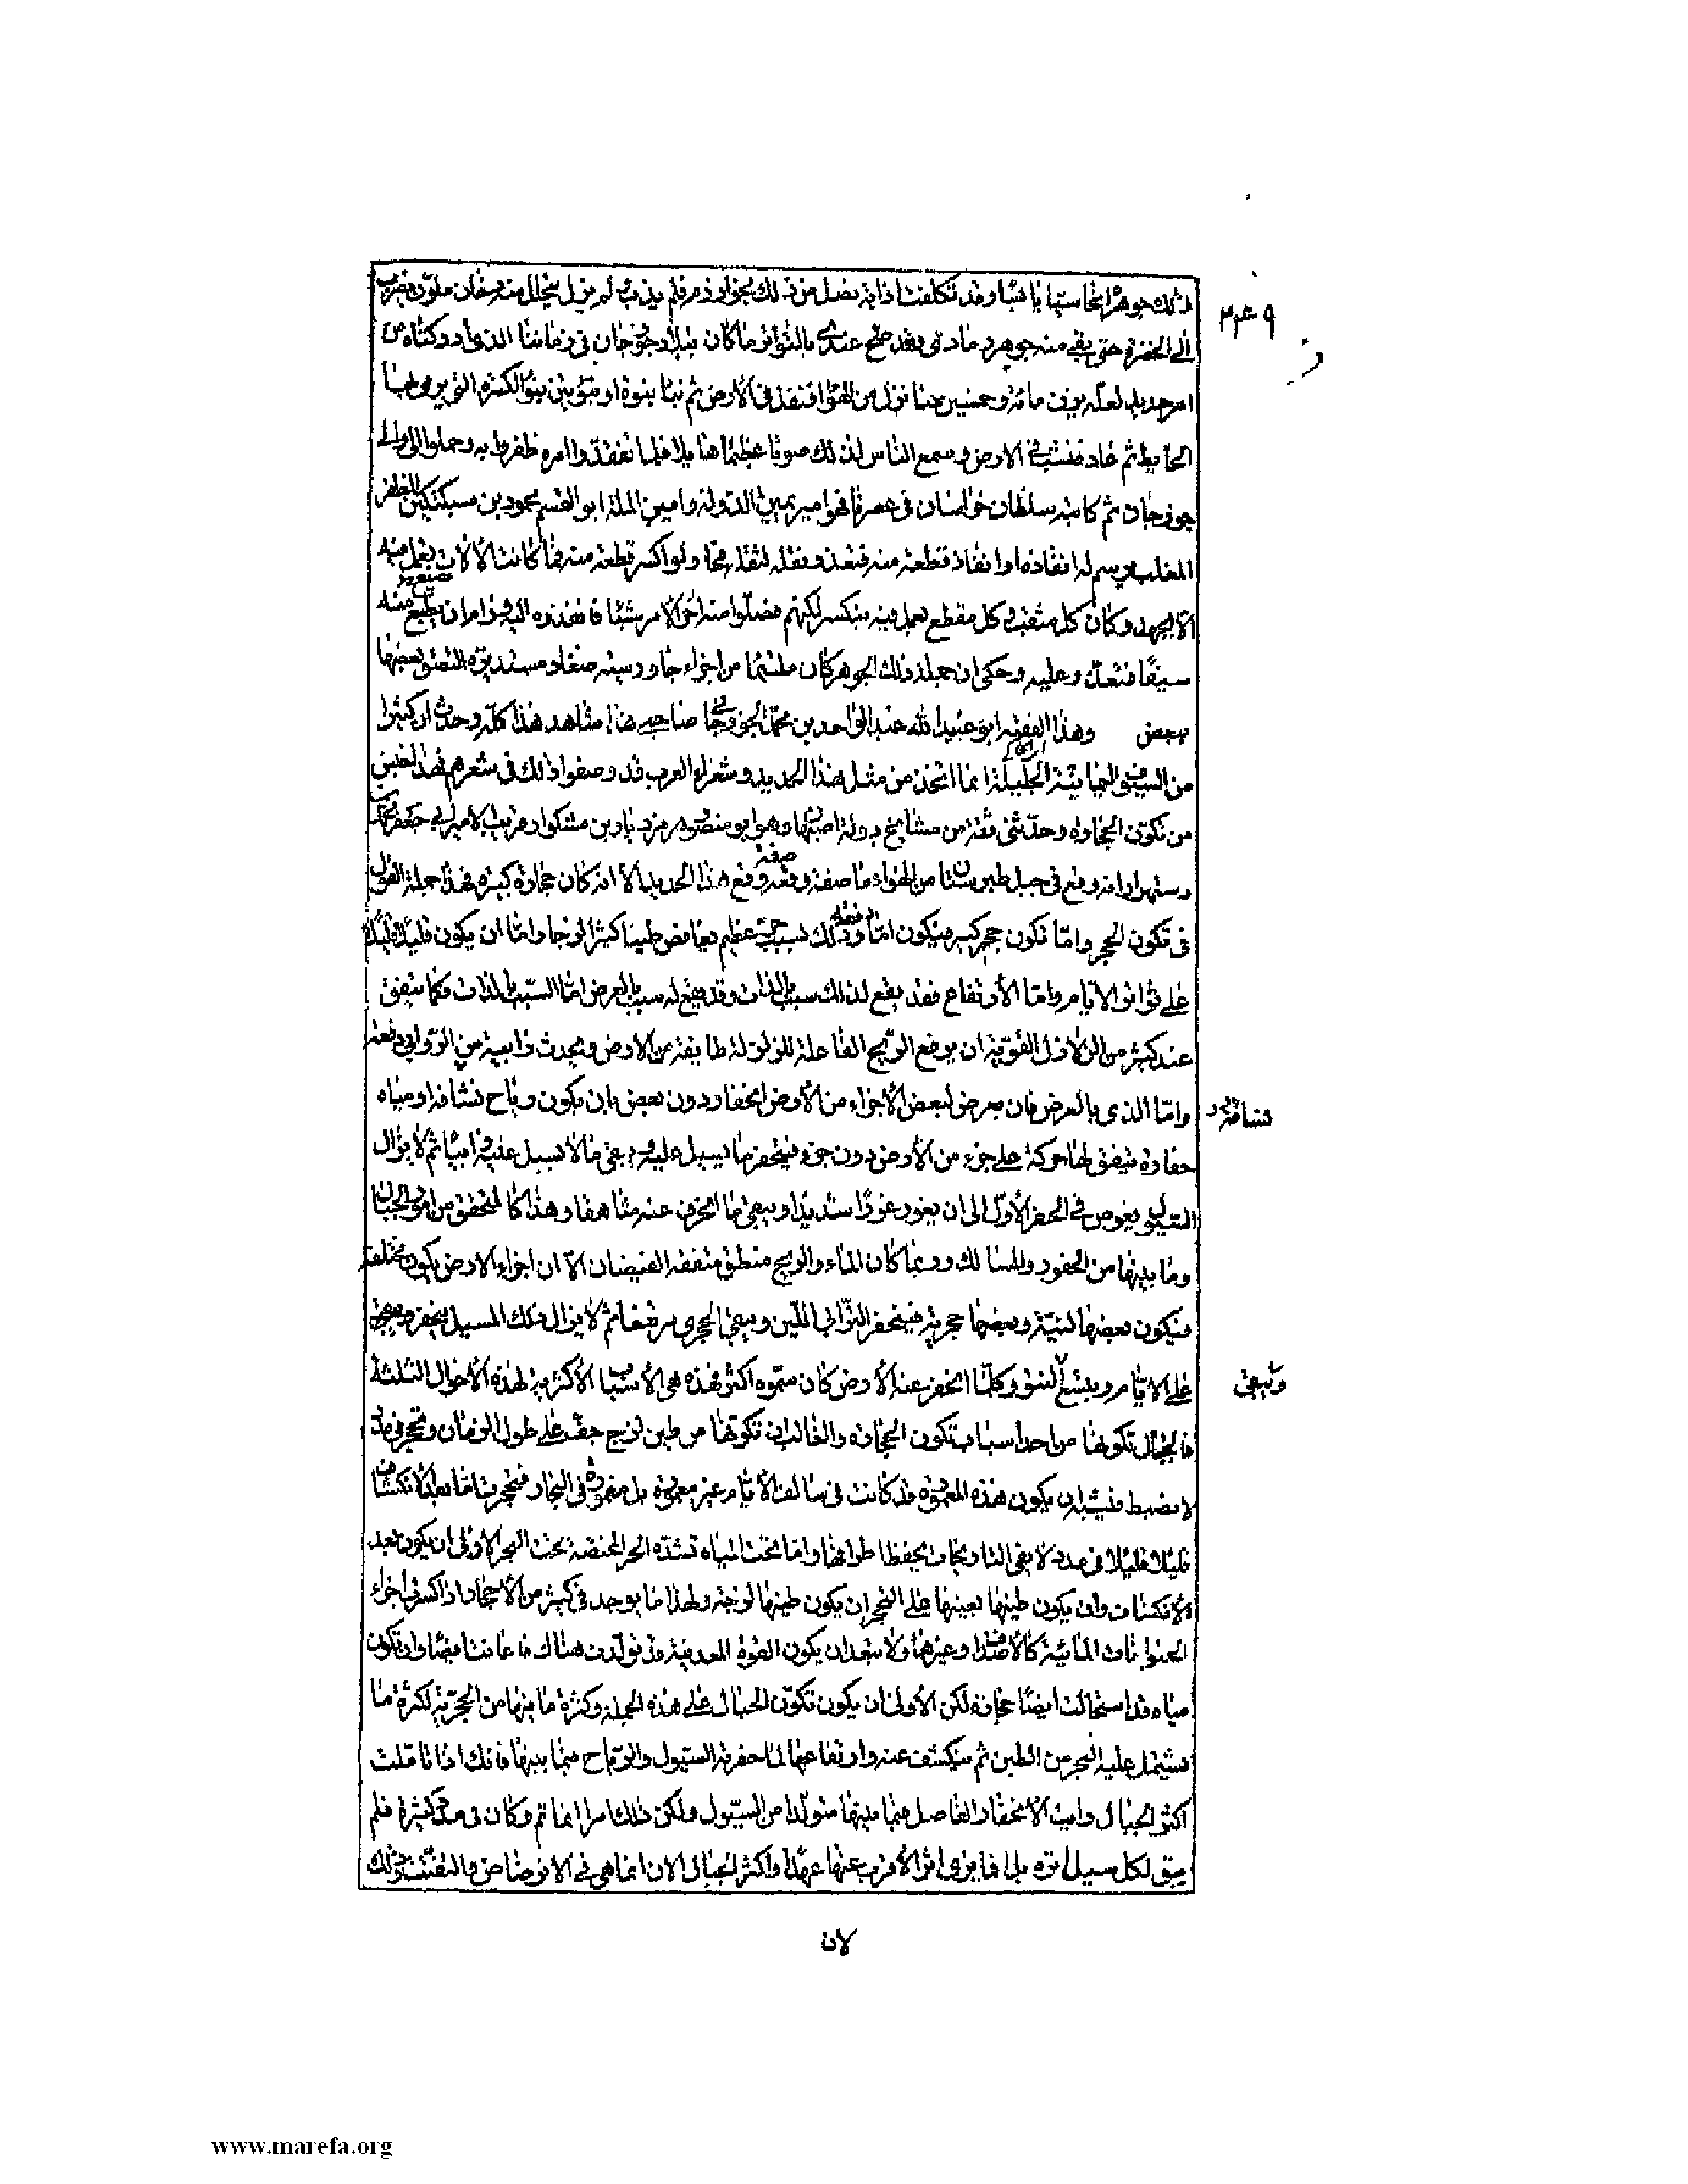 ذلك جوهرا نحاسيا يابسا وقد تكلفت اذابة نصل من ذلك بخوارزم فلم يذب ولم يزل يتحلل منه دخان ملون يضرب
الى الخضرة حتى بقى منه جوهر رمادى وقد صح عندى بالتواتر ما كان ببلاد جوزجان فى زماننا الذى ادركناه من
امر حديد لعله يزن مائة وخمسين منا نزل من الهواء فنفذ فى الارض ثم نبا نبوة او نبوتين نبو الكرة التى يرمى بها
الحايط ثم عاد فنشب فى الارض وسمع الناس لذلك صوتا عظيما هايلا فلما تفقدوا امره ظفروا به وحملوا الى والى
جوزجان ثم كاتبه سلطان خراسان فى عصرنا فهو امير يمين الدولة وامين الملة ابو القسم محمود بن سبكتكين المظفر
المغلب يرسم له انفاذه او انفاذ قطعة منه فتعذر نقله لثقله فحاولوا كسر قطعة منه فما كانت الالات تعمل فيه
الا بجهد وكان كل مثقب وكل مقطع يعمل فيه ينكسر لكنهم فصلوا منه اخر الامر شيئا فانفذوه اليه ورام ان يطبع منه
سيفا فتعذر عليه وحكى ان جملة ذلك الجوهر كان ملتئما من اجزاء جاورسية صغار مستديرة التصق بعضها
ببعض وهذا الفقيه ابو عبيد الله عبد الواحد بن محمد الجوزجانى صاحبى هذا شاهد هذا كله وحدثت ان كثيرا
من السيوف اليمانية الجليلة انما اتخذ من مثل هذا الحديد وشعراء العرب قد وصفوا ذلك فى شعرهم فهذا جنس
من تكون الحجارة وحدثنى ثقة من مشايخ دولة اصبهان وهو ابو منصور هرمزديار بن مشكوار قريب الامير ابى جعفر محمد
دستمرار انه وقع فى جبل طبرستان من الهواء ما صفة وقعه وقع هذا الحديد الا انه كان حجارة كبيرة فهذا جملة القول
فى تكون الحجر واما تكون حجر كبير فيكون اما دفعة وذلك بسبب حر عظيم يعافص طينا كثيرا لزجا واما ان يكون قليلا قليلا
على تواتر الايام واما الارتفاع فقد يقع لذلك سبب بالذات وقد يقع له سبب بالعرض اما السبب بالذات فكما يتفق
عند كثير من الزلازل القوية ان يرفع الريح الفاعلة للزلزلة طايفة من الارض ويحدث رابية من الروابى دفعة
واما الذى بالعرض فان يعرض لبعض الاجزاء من الارض انحفار دون بعض بان يكون رياح نسافة او مياه
نسافة
حفارة يتفق لها حركة على جزء من الارض دون جزء فيتحفر ما يسيل عليه ويبقى ما لا يسيل عليه رابيا ثم لا يزال
السيول يغوص فى الحفر الاول الى ان يغور غورا شديدا ويبقى ما انحرف عنه شاهقا وهذا كالمتحقق من امور الجبال
وما بينها من الحفور والمسالك وربما كان الماء والريح متفقة الفيضان الا ان اجزاء الارض يكون مختلفة
فيكون بعضها لينة وبعضها حجرية فينحفر الترابى اللين ويبقى الحجرى مرتفعا ثم لا يزال ذلك المسيل ينحفر وينحفر
على الايام ويتسع النتو وكلما انحفر عنه الارض كان شموه اكثر فهذه هى الاسباب الاكثرية لهذه الاحوال الثلثة
ويبقى
فالجبال تكونها من احد اسباب تكون الحجارة والغالب ان تكونها من طين لزج جف على طول الزمان وتحجر فى مدد
لا يضبط فيشبه ان يكون هذه المعمورة قد كانت فى سالف الايام غير معمورة بل مغمورة فى البحار فتحجرت اما بعد الانكشاف
قليلا قليلا فى مدد لا يفى التاريخات بحفظ اطرافها واما تحت المياه لشدة الحر المحتقنة تحت البحر والاولى ان يكون بعد
الانكشاف وان يكون طينها يعينها على التحجر ان يكون طينها لزجة ولهذا ما يوجد فى كثير من الاحجار اذا كسرت اجزاء
الحيوانات المائية كالاصداف وغيرها ولا يبعد ان يكون القوة المعدنية قد تولدت هناك فاعانت ايضا وان تكون
مياه قد استحالت ايضا حجارة لكن الاولى ان يكون تكون الجبال على هذه الجملة وكثرة ما فيها من الحجرية لكثرة ما
يشتمل عليه البحر من الطين ثم ينكشف عنه وارتفاعها لما حفرته السيول والرياح فيما بينها فانك اذا تاملت
اكثر الجبال رايت الانحفار الفاصل فيما بينها متولدا من السيول ولكن ذلك امر انما تم وكان فى مدد كثيرة فلم
يبق لكل سيل اثره بل انما يرى اثر الاقرب عنها عهدا واكثر الجبال الان انما هى فى الانرضاض والتفتت وذلك
لان
www.marefa.org